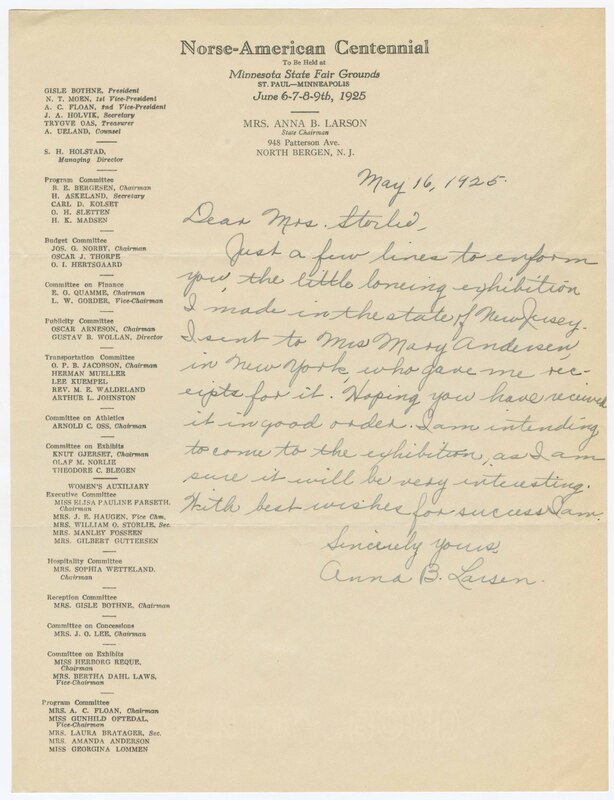 Norse-American Centennial
To Be Held at
Minnesota State Fair Grounds
ST. PAUL—MINNEAPOLIS
June 6-7-8-9th, 1925
MRS. ANNA B. LARSON
State Chairman
948 Patterson Ave.
NORTH BERGEN, N. J.
GISLE BOTHNE, President
N. T. MOEN, 1st Vice-President
A. C. FLOAN, 2nd Vice-President
J. A. HOLVIK, Secretary
TRYGVE OAS, Treasurer
A. UELAND, Counsel
S. H. HOLSTAD,
Managing Director
Program Committee
B. E. BERGESEN, Chairman
H. ASKELAND, Secretary
CARL D. KOLSET
O. H. SLETTEN
H. K. MADSEN
Budget Committee
JOS. G. NORBY, Chairman
OSCAR J. THORPE
O. I. HERTSGAARD
Committee on Finance
E. G. QUAMME, Chairman
L. W. GORDER, Vice-Chairman
Publicity Committee
OSCAR ARNESON, Chairman
GUSTAV B. WOLLAN, Director
Transportation Committee
O. P. B. JACOBSON, Chairman
HERMAN MUELLER
LEE KUEMPEL
REV. M. E. WALDELAND
ARTHUR L. JOHNSTON
Committee on Athletics
ARNOLD C. OSS, Chairman
Committee on Exhibits
KNUT GJERSET, Chairman
OLAF M. NORLIE
THEODORE C. BLEGEN
WOMEN'S AUXILIARY
Executive Committee
MISS ELISA PAULINE FARSETH,
Chairman
MRS. J. E. HAUGEN, Vice Chm.
MRS. WILLIAM O. STORLIE, Sec.
MRS. MANLEY FOSSEEN
MRS. GILBERT GUTTERSEN
Hospitality Committee
MRS. SOPHIA WETTELAND,
Chairman
Reception Committee
MRS. GISLE BOTHNE, Chairman
Committee on Concessions
MRS. J. O. LEE, Chairman
Committee on Exhibits
MISS HERBORG REQUE,
Chairman
MRS. BERTHA DAHL LAWS,
Vice-Chairman
Program Committee
MRS. A. C. FLOAN, Chairman
MISS GUNHILD OFTEDAL,
Vice-Chairman
MRS. LAURA BRATAGER, Sec.
MRS. AMANDA ANDERSON
MISS GEORGINA LOMMEN
May 16, 1925.
Dear Mrs. Storlie,
Just a few lines to enform
you, the little loneing exhibition
I, made in the state of New Jersey.
I sent to Mrs Mary Andersen,
in New York, who gave me rec-
eipts for it. Hoping you have received
it in good order. I am intending
to come to the exhibition, as I am
sure it will be very interesting.
With best wishes for success I am.
Sincerely yours,
Anna B. Larsen.